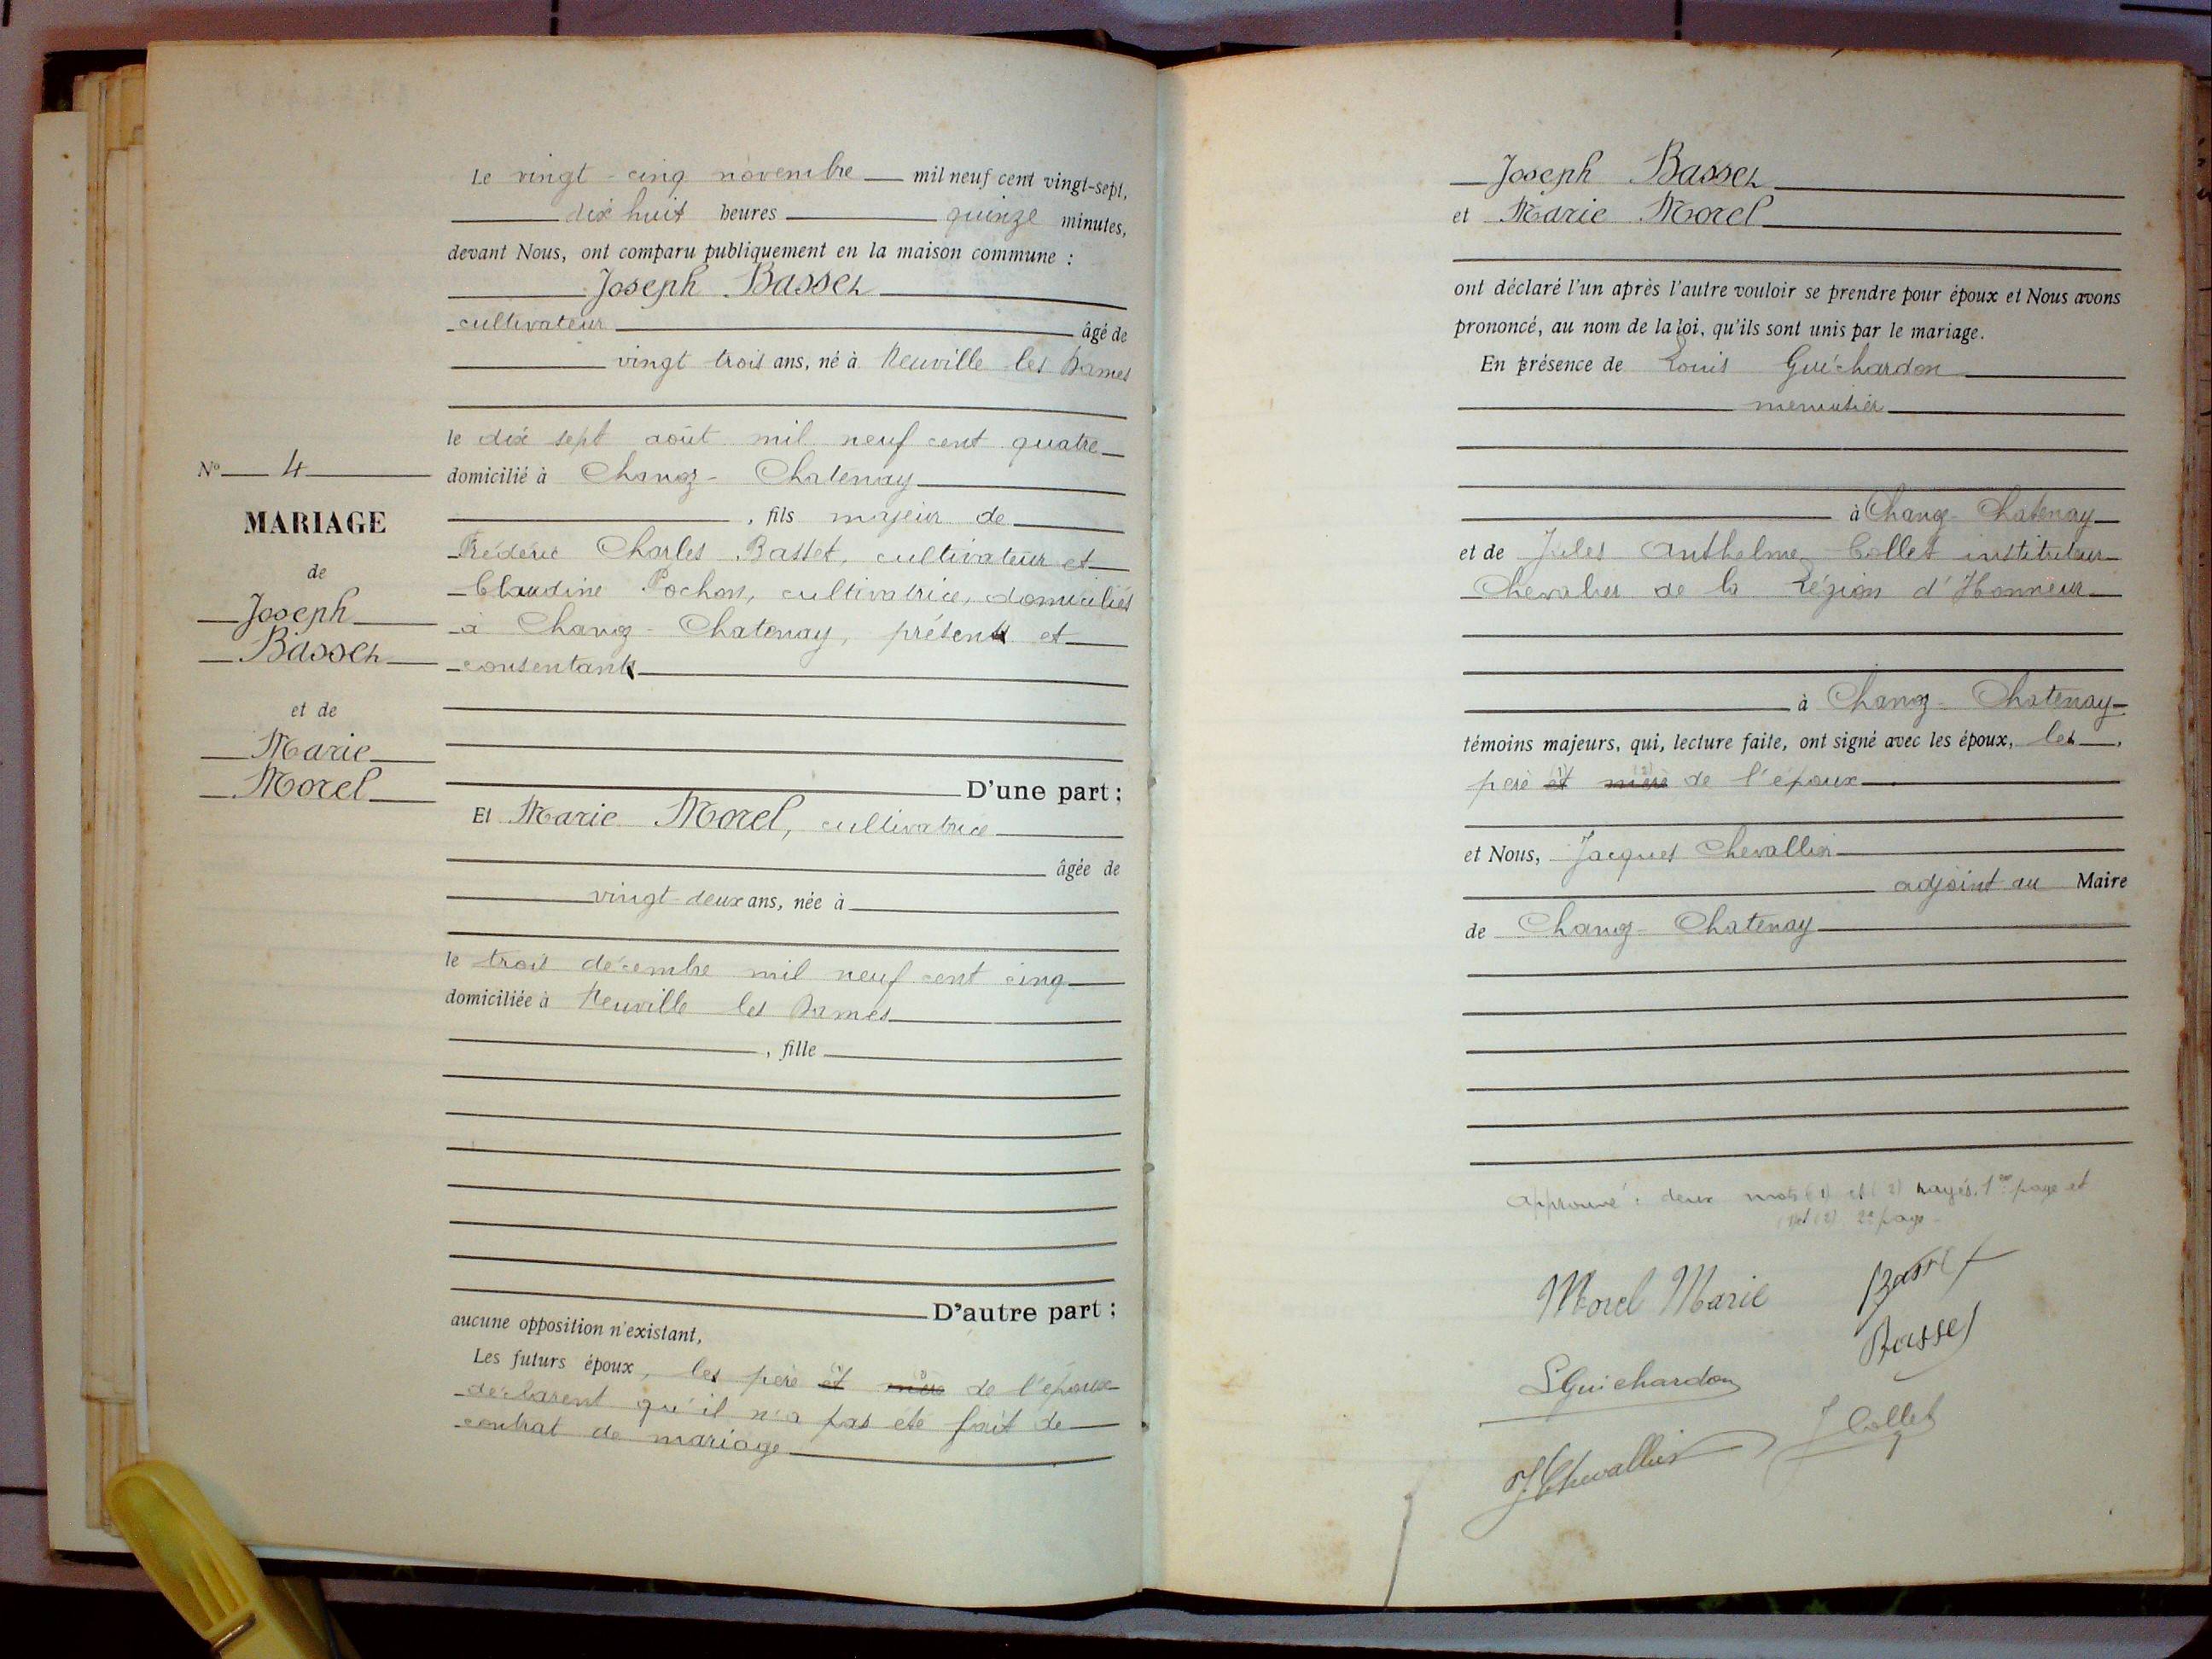 Le vingt-cinq novembre mil neuf cent vingt-sept,
dix huit heures quinze minutes,
devant Nous, ont comparu publiquement en la maison commune :
Joseph Basset
cultivateur âgé de
vingt trois ans, né à Neuville les Dames
le dix sept août mil neuf cent quatre
domicilié à Chanoz-Chatenay
, fils majeur de
Frédéric Charles Basset, cultivateur et
Claudine Pochon, cultivatrice, domiciliés
à Chanoz-Chatenay, présents et
consentants
D'une part :
Et Marie Morel, cultivatrice
âgée de
vingt-deux ans, née à
le trois décembre mil neuf cent cinq
domiciliée à Neuville les Dames
, fille
D'autre part :
aucune opposition n'existant,
Les futurs époux, les père et (1) mère (2) de l'époux
déclarent qu'il n'a pas été fait de
contrat de mariage
No 4
MARIAGE
de
Joseph
Basset
et de
Marie
Morel
Joseph Basset
et Marie Morel
ont déclaré l'un après l'autre vouloir se prendre pour époux et Nous avons
prononcé, au nom de la loi, qu'ils sont unis par le mariage.
En présence de Louis Guichardon
menuisier
à Chanoz-Chatenay
et de Jules Anthelme Collet instituteur
Chevalier de la Légion d'Honneur
à Chanoz-Chatenay
témoins majeurs, qui, lecture faite, ont signé avec les époux, les
père et (1) mère (2) de l'époux
et Nous, Jacques Chevallier
adjoint au Maire
de Chanoz-Chatenay
Approuvé : deux mots (1) et (2) rayés, 1ère page et
(1) et (2) 2e page
Morel Marie Basset
Basset
L Guichardon
J Collet
J Chevallier